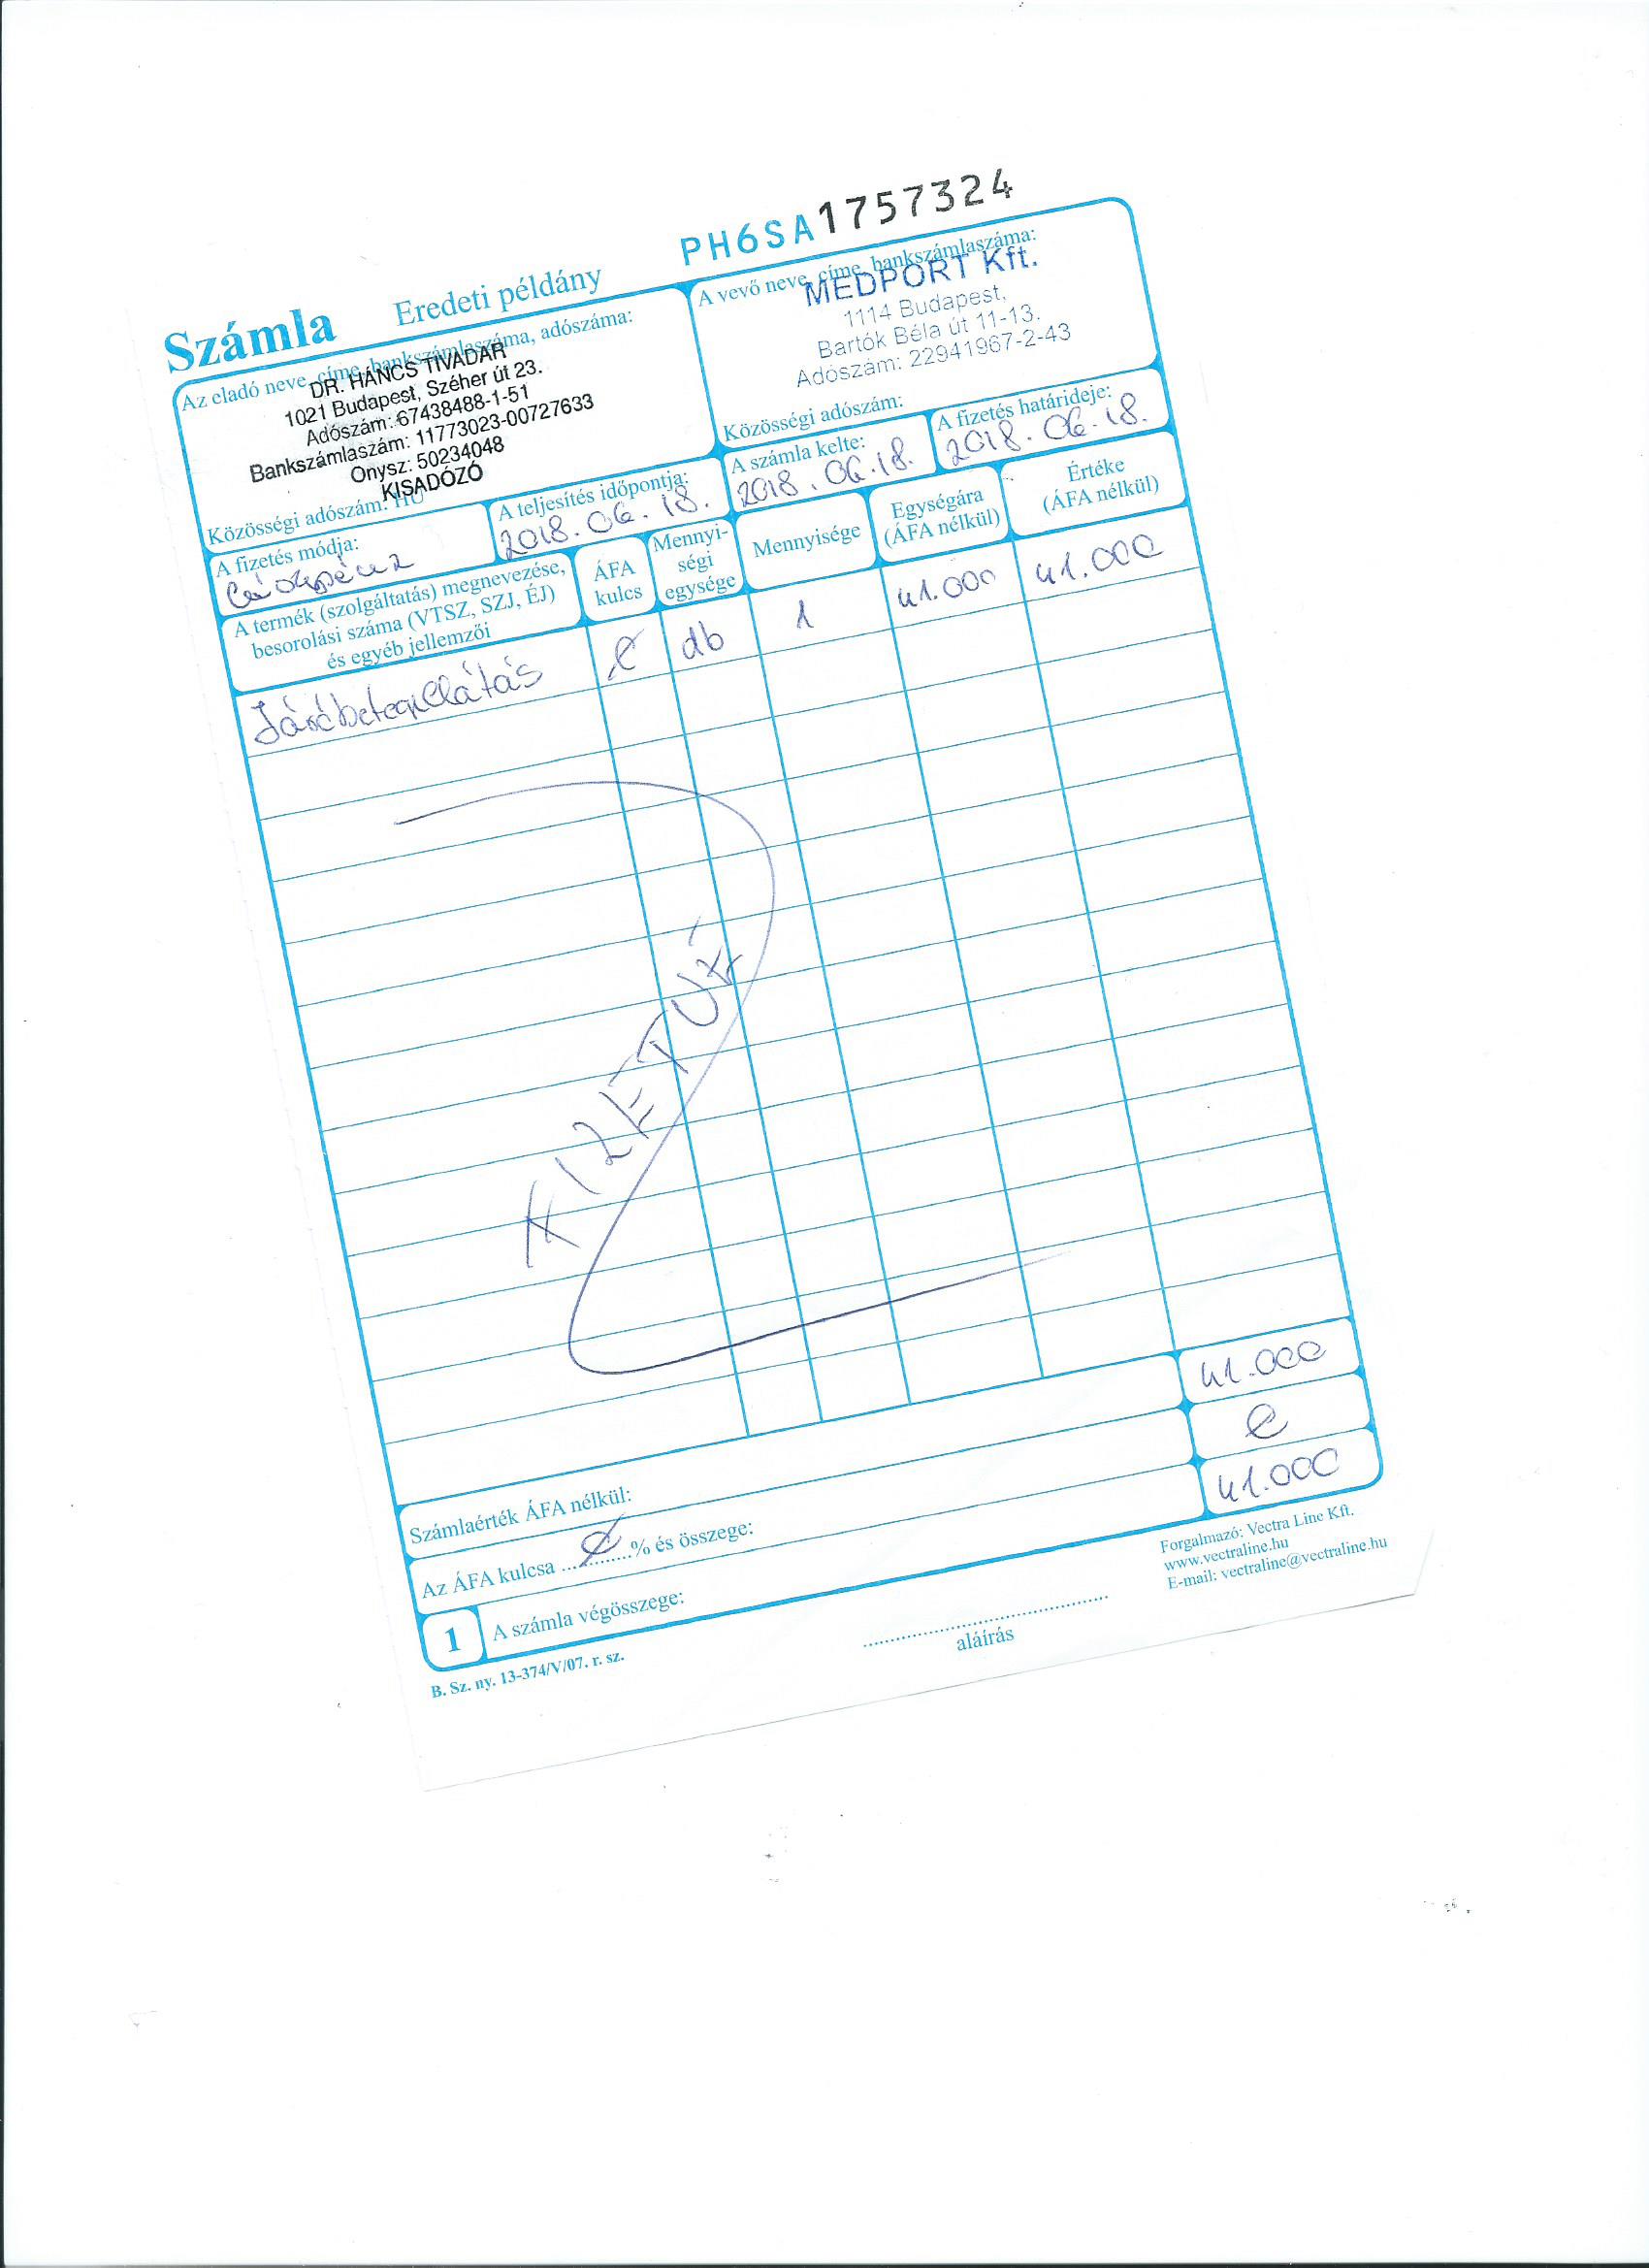 PH6SA1757324
Számla Eredeti példány
Az eladó neve, címe, bankszámlaszáma, adószáma:
DR. HÁNCS TIVADAR
1021 Budapest, Széher út 23.
Adószám: 67438488-1-51
Bankszámlaszám: 11773023-00727633
Onysz: 50234048
KISADÓZÓ
Közösségi adószám: HU
A vevő neve, címe, bankszámlaszáma:
MEDPORT Kft.
1114 Budapest,
Bartók Béla út 11-13.
Adószám: 22941967-2-43
Közösségi adószám:
A fizetés módja:
Készpénz
A teljesítés időpontja:
2018.06.18.
A számla kelte:
2018.06.18.
A fizetés határideje:
2018.06.18.
A termék (szolgáltatás) megnevezése,
besorolási száma (VTSZ, SZJ, ÉJ)
és egyéb jellemzői
ÁFA
kulcs
Mennyi-
ségi
egysége
Mennyisége
Egységára
(ÁFA nélkül)
Értéke
(ÁFA nélkül)
Járóbetegellátás db 1 41.000 41.000
FIZETVE
Számlaérték ÁFA nélkül: 41.000
Az ÁFA kulcsa ............% és összege:
1 A számla végösszege: 41.000
B. Sz. ny. 13-374/V/07. r. sz.
aláírás
Forgalmazó: Vectra Line Kft.
www.vectraline.hu
E-mail: vectraline@vectraline.hu